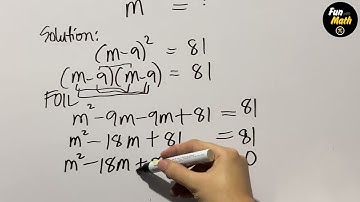 m = ?
Fun
Math
Solution:
(m-9)² = 81
(m-9)(m-9) = 81
FOIL
m² - 9m - 9m + 81 = 81
m² - 18m + 81 = 81
m² - 18m + 0